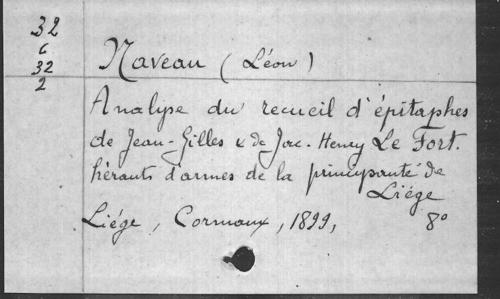 32
6
32
2
Naveau (Léon)
Analyse du recueil d'épitaphes
de Jean-Gilles & de Jac. Henry Le Fort.
hérauts d'armes de la principauté de
Liége
Liége, Cormaux, 1899, 8°